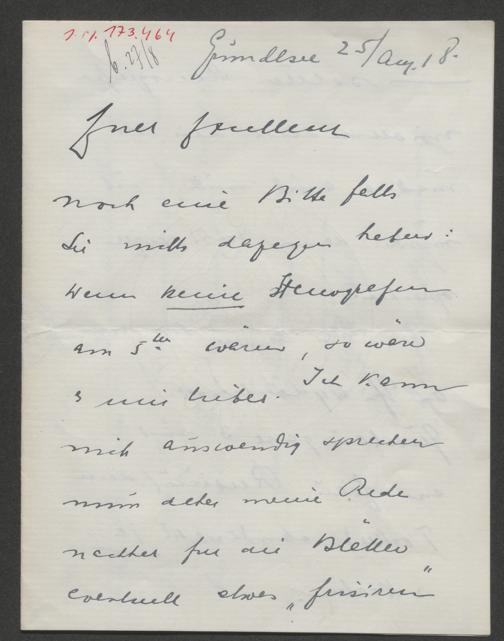 I.N. 173.464
b. 27/8
Grundlsee 25/Aug. 18.
Euer Excellenz
noch eine Bitte falls
Sie nichts dagegen haben:
wenn keine Stenografen
am 5ten wären, so wäre
s mir lieber. Ich kann
nich auswendig sprechen
muss daher meine Rede
nachher für die Blätter
eventuell etwas „frisiren"